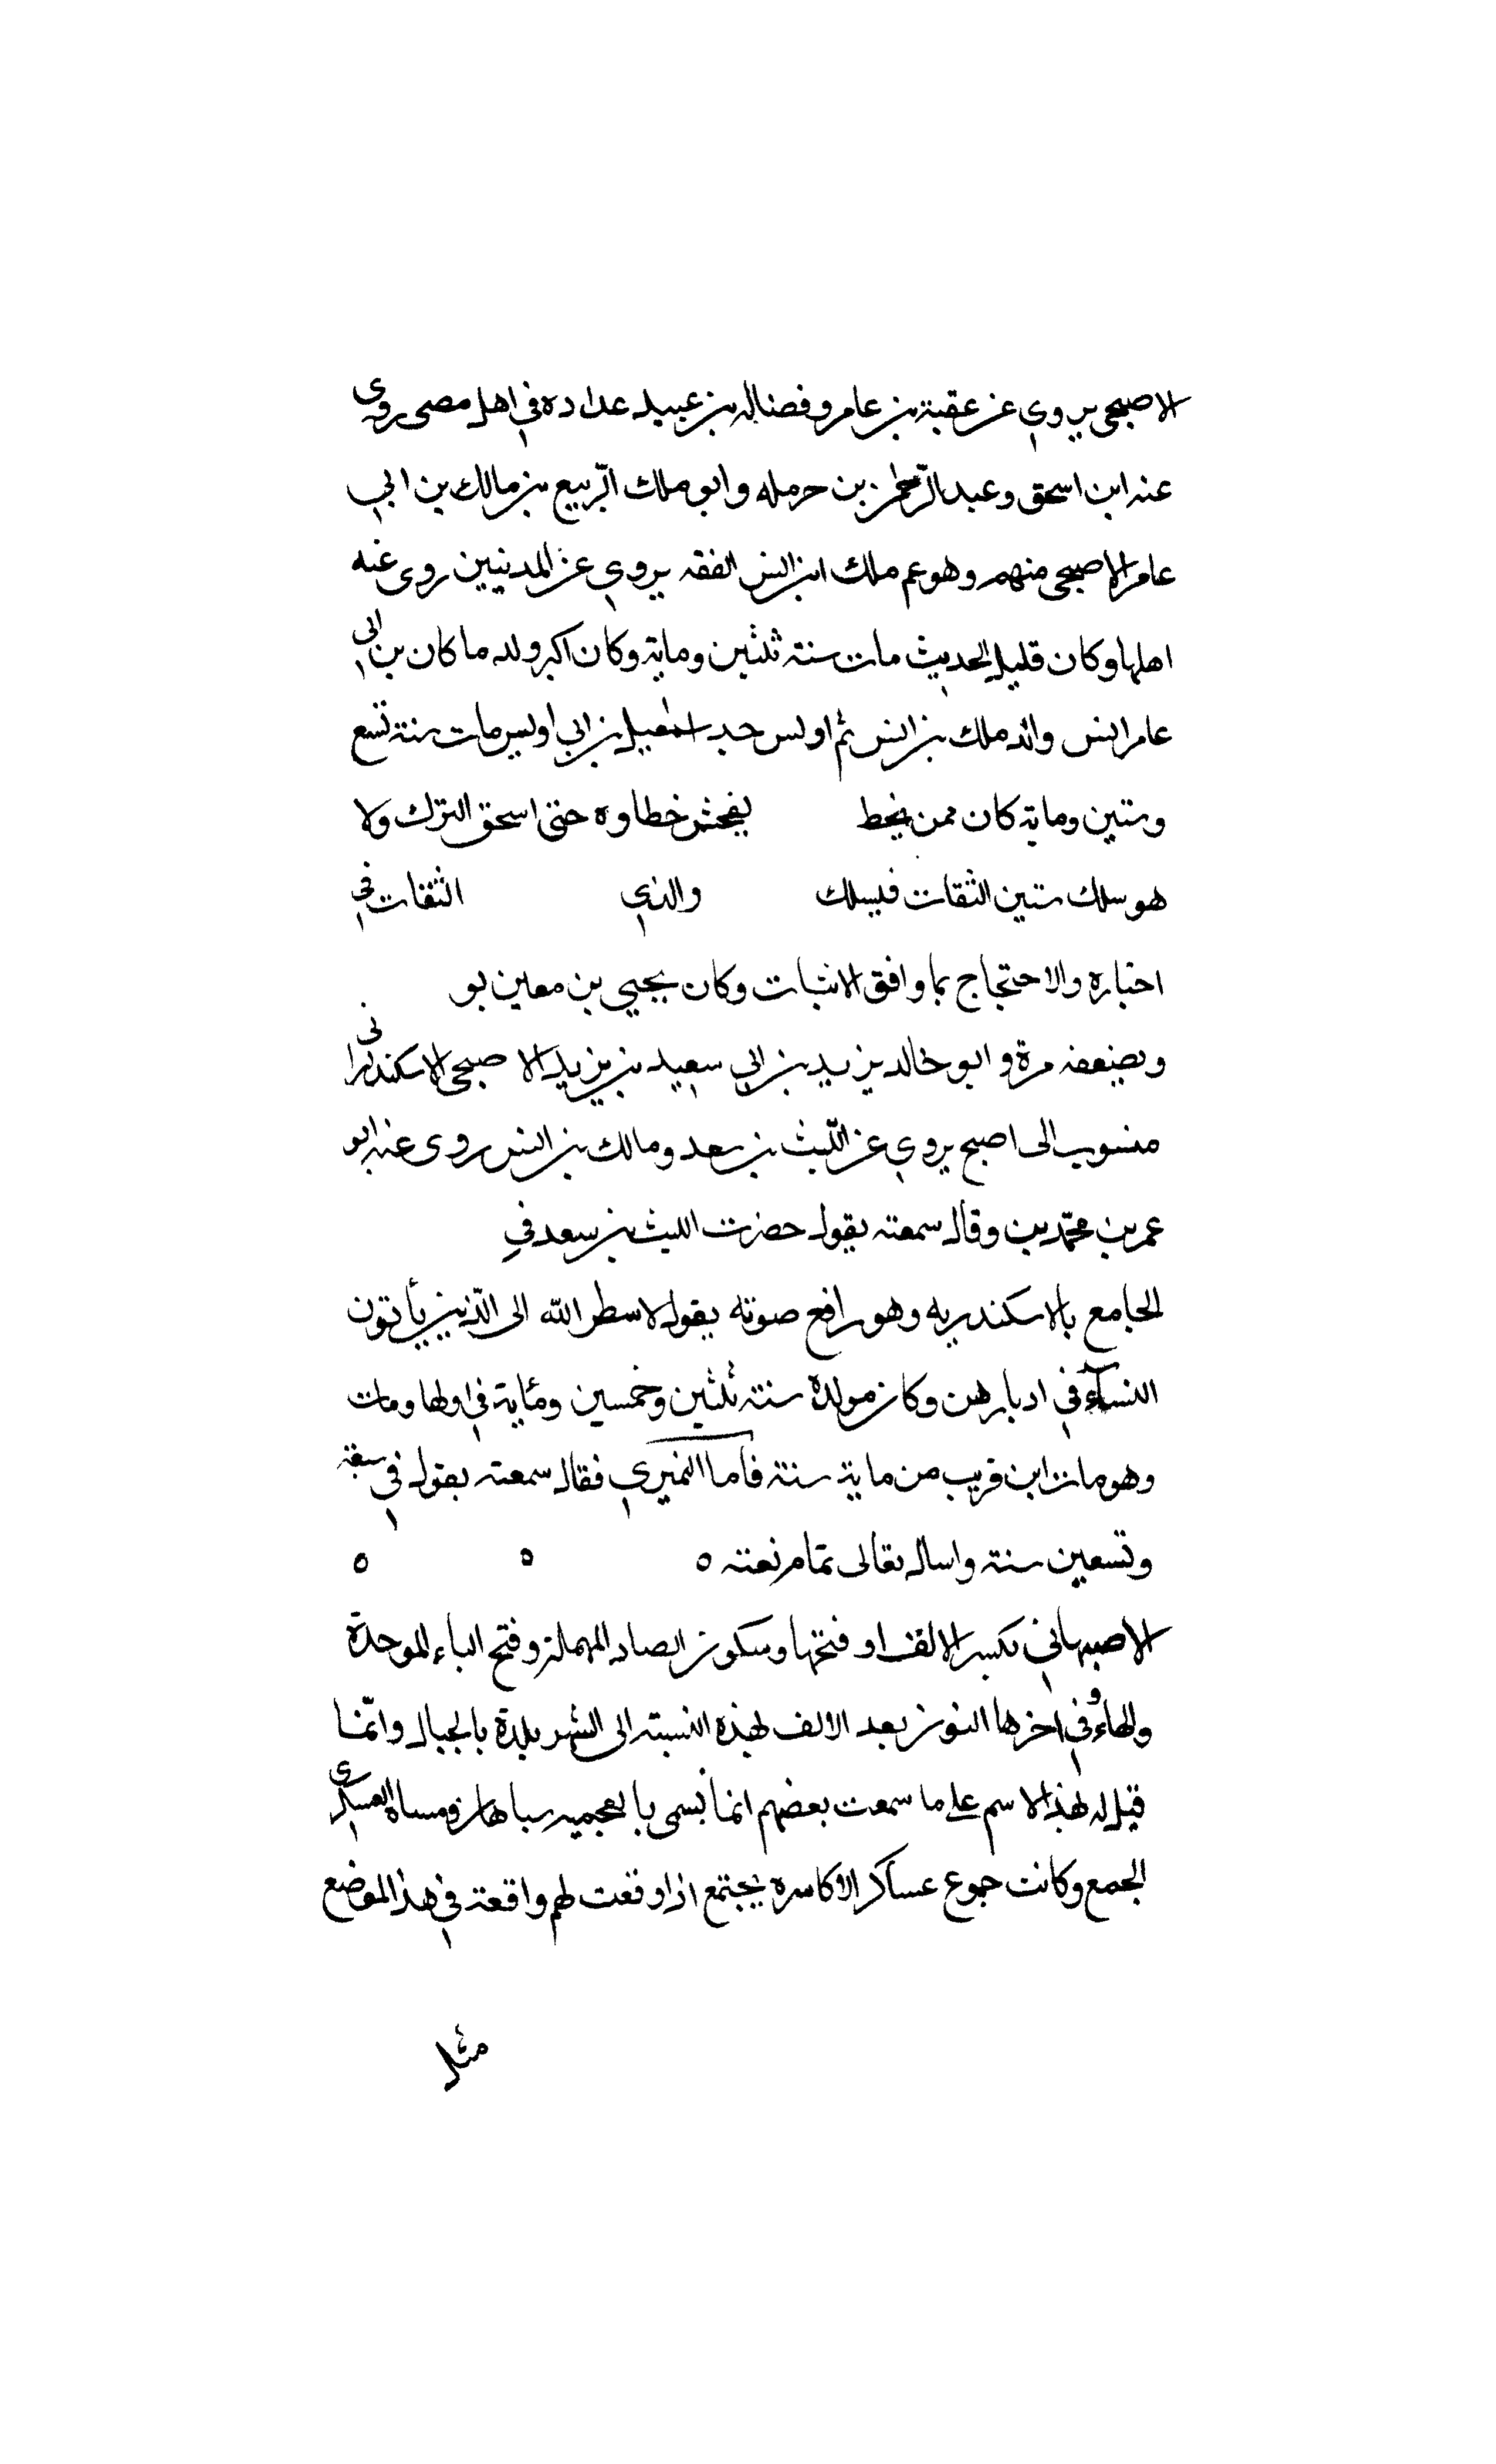 الاصبحى يروي عن عقبة بن عامر وفضاله بن عبيد عداده في اهل مصى روى
عنه ابن اسحق وعبد الرحمن بن حرمله وابو ملك الربيع بن مالك بن ابي
عامر الاصبحى منهم وهو عم ملك ابن انس الفقه يروي عن المدنيين روى عنه
اهلها وكان قليل الحديث مات سنة ثلثين وماية وكان اكبر ولد ما كان بن ابي
عامر انس والد ملك بن انس ثم اويس جد اسمعيل بن ابي اويس مات سنة تسع
وستين وماية كان ممن يخط يفحش خطاوه حتى اسحق الترك ولا
هو سلك سنين الثقات فيسلك والذي الثقات في
اخباره والاحتجاج بما وافق الاثبات وكان يحيى بن معين يو
ويضعفه مرة وابو خالد يزيد بن ابي سعيد بن يزيد الاصبحى الاسكندرانى
منسوب الى اصبح يروي عن الليث بن سعد ومالك بن انس روى عنه ابو
عمر بن محمد بن وقال سمعته يقول حضرت الليث بن سعد في
الجامع بالاسكندريه وهو رافع صوته يقول لا سطر الله الى الذين يأتون
النسآء في ادبارهن وكان مولده سنة ثلثين وخمسين ومئاية في اولها ومات
وهو مات ابن قريب من ماية سنة فاما النميري فقال سمعته يقول في سبعة
وتسعين سنة واسال تعالى تمام نعته ٥ ٥ ٥
الاصبهاني بكسر الالف او فتحها وسكون الصاد المهملة وفتح الباء الموحدة
والهاء وفي اخرها النون بعد الالف لهذه النسبة الى اشهر بلدة بالجبال وانما
قيل له لهذا الاسم على ما سمعت بعضهم انما تسمى بالعجميه سباهان ومساه العسكرى
الجمع وكانت جموع عساكر الاكاسره يجتمع اذا وقعت لهم واقعة في هذا الموضع
مثل